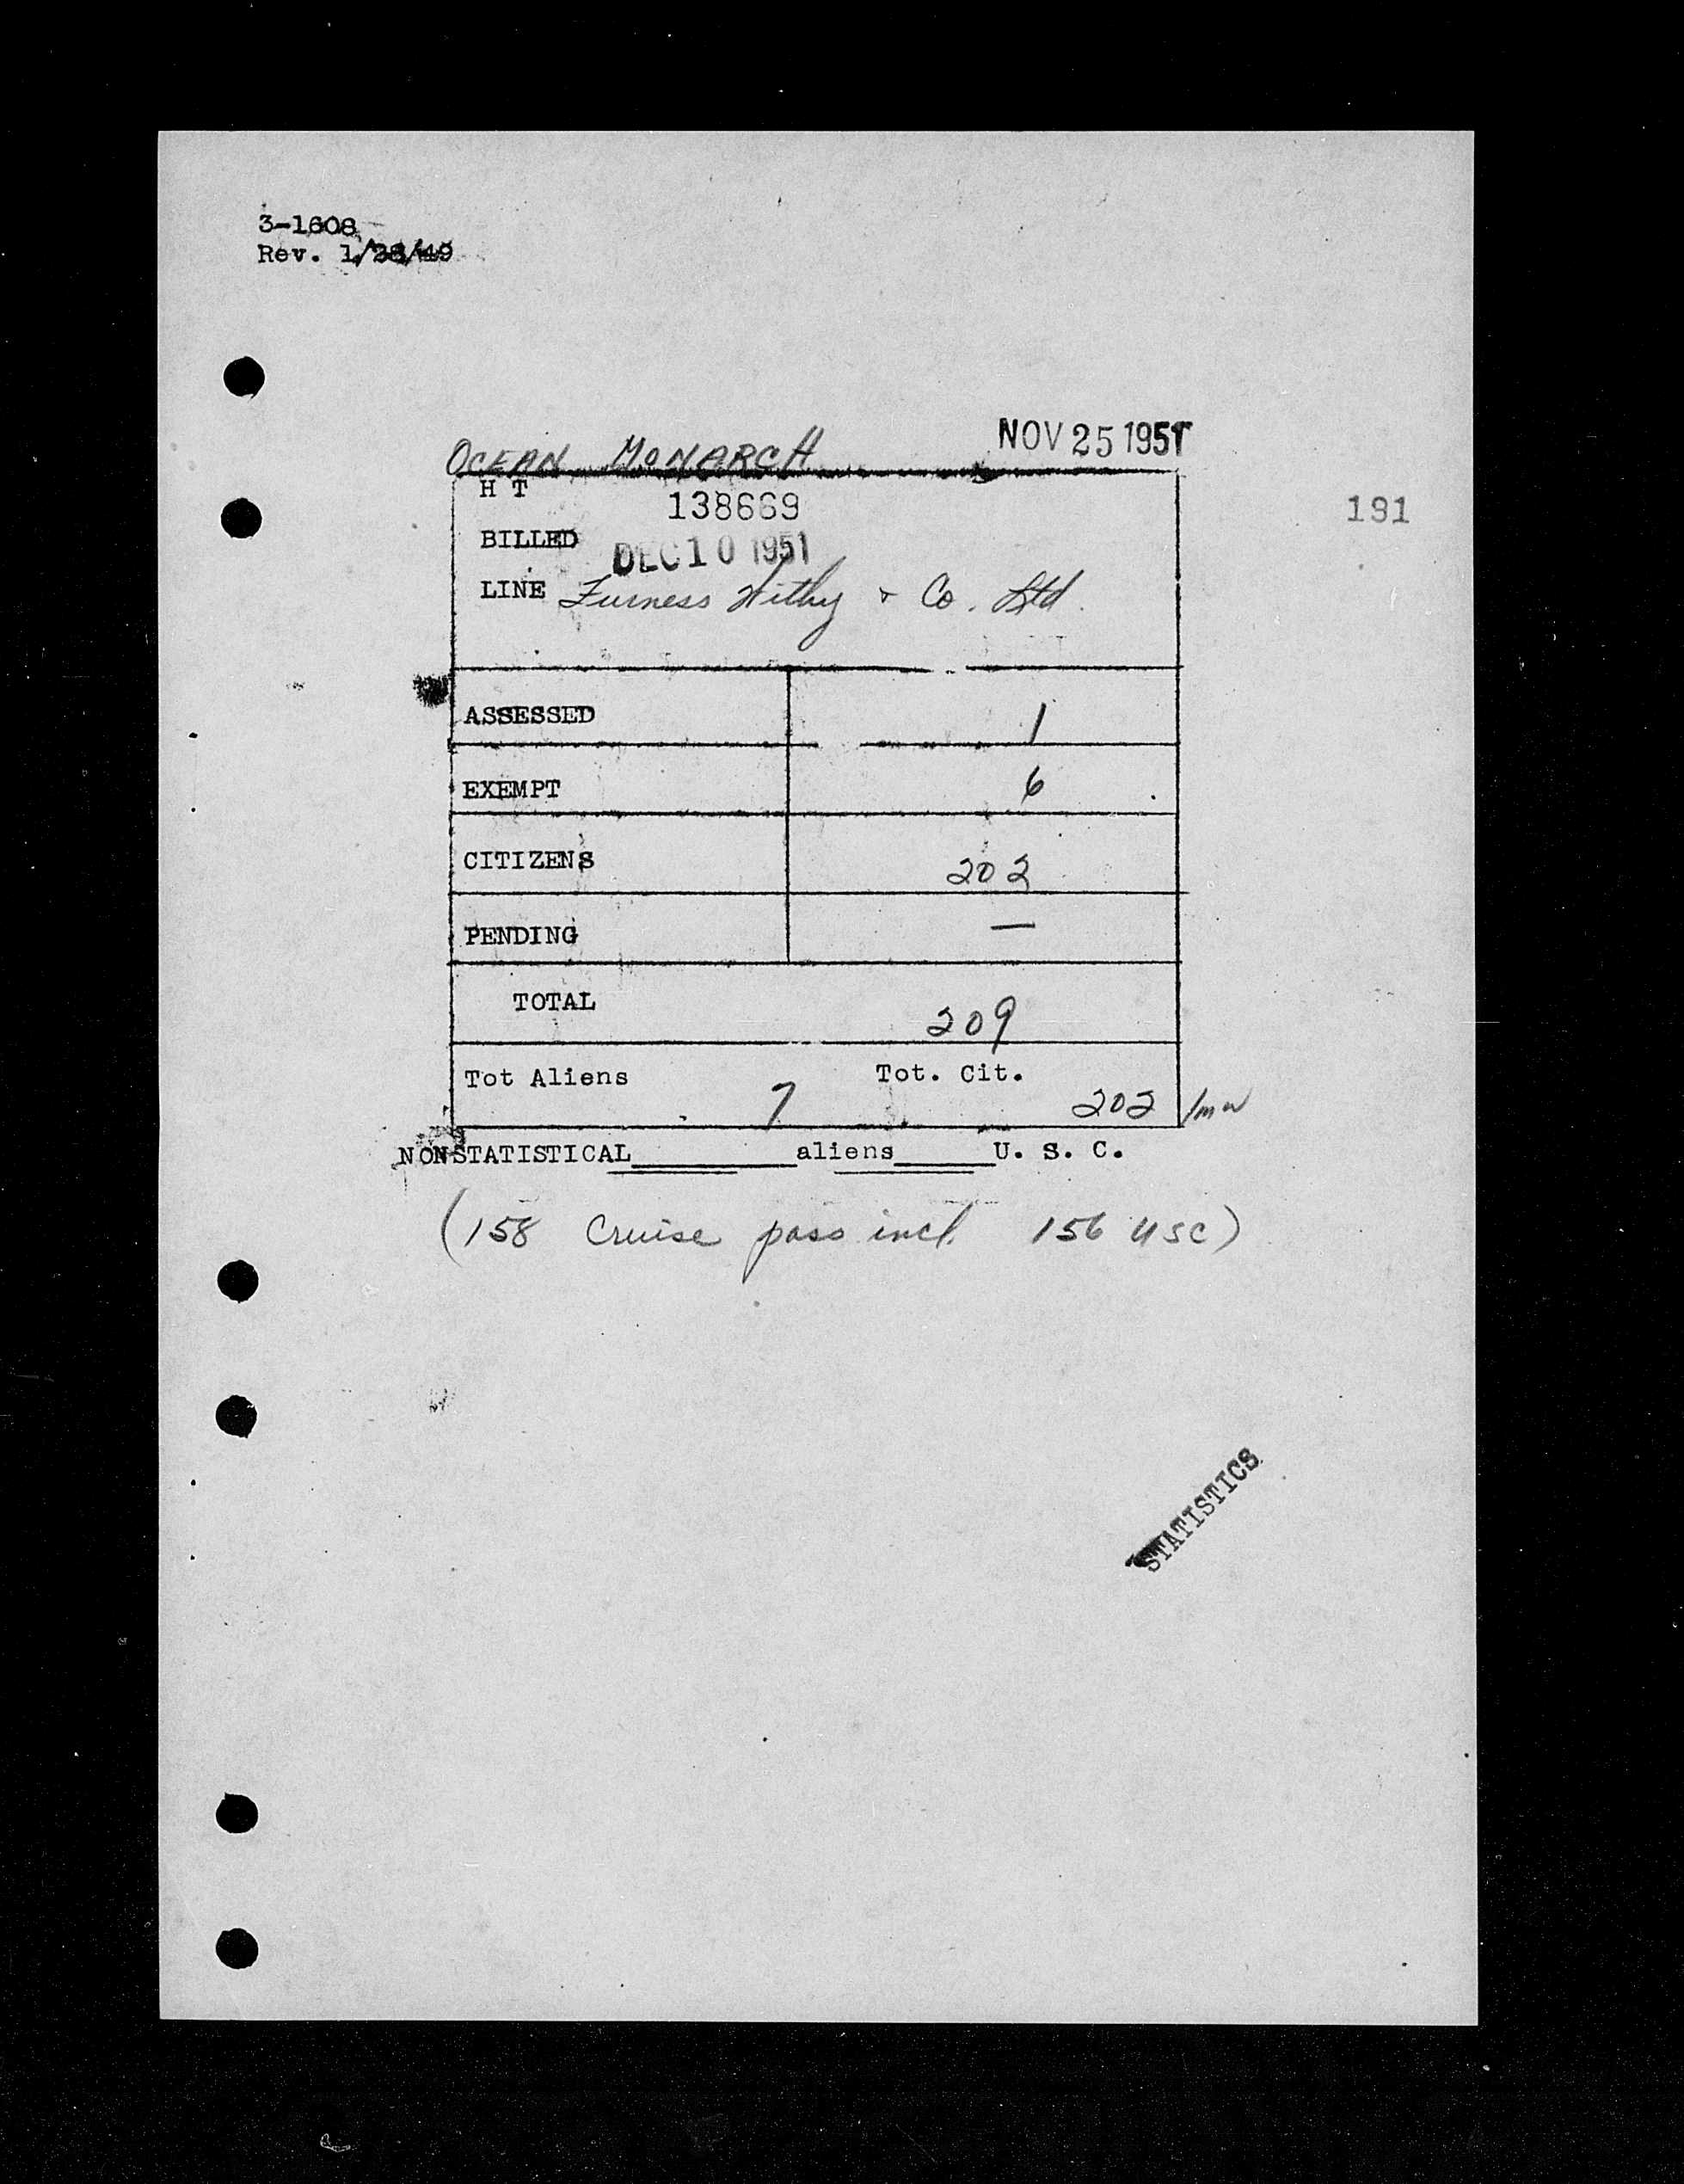 3-1608
Rev. 1/28/49
OCEAN MONARCH NOV 25 1951
H T 138669
191
BILLED DEC 10 1951
LINE Furness Withy & Co. Ltd.
ASSESSED 1
EXEMPT 6
CITIZENS 202
PENDING —
TOTAL 209
Tot Aliens 7 Tot. Cit. 202 /mw
NONSTATISTICAL________aliens_____U. S. C.
(158 Cruise pass incl. 156 USC)
STATISTICS